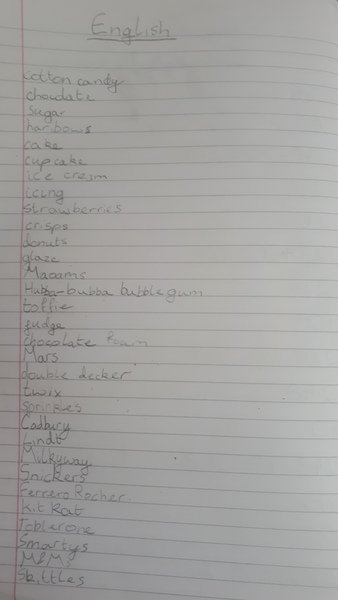 English
cotton candy
chocolate
sugar
haribows
cake
cupcake
ice cream
icing
strawberries
crisps
donuts
glaze
Maoams
Hubba-bubba bubblegum
toffie
fudge
chocolate
Mars
double decker
twix
sprinkles
Cadbury
Lindt
Milkyway
Snickers
Ferrero Rocher.
Kit Kat
Toblerone
Smartys
M&Ms
Skittles